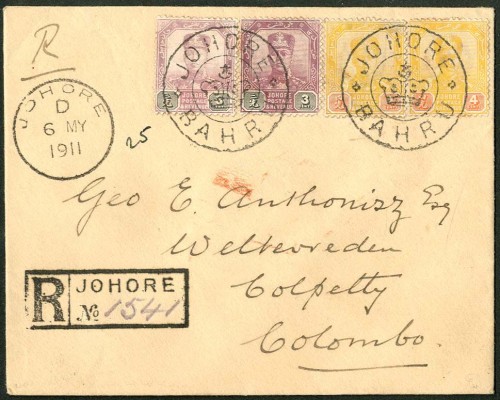 R
JOHORE
D
6 MY
1911
25
JOHORE
BAHRU
JOHORE
BAHRU
JOHORE
POSTAGE
3
JOHORE
POSTAGE
3
4
Geo E. Anthonisz Esq
Weltevreden
Colpetty
Colombo.
R JOHORE
No 1541